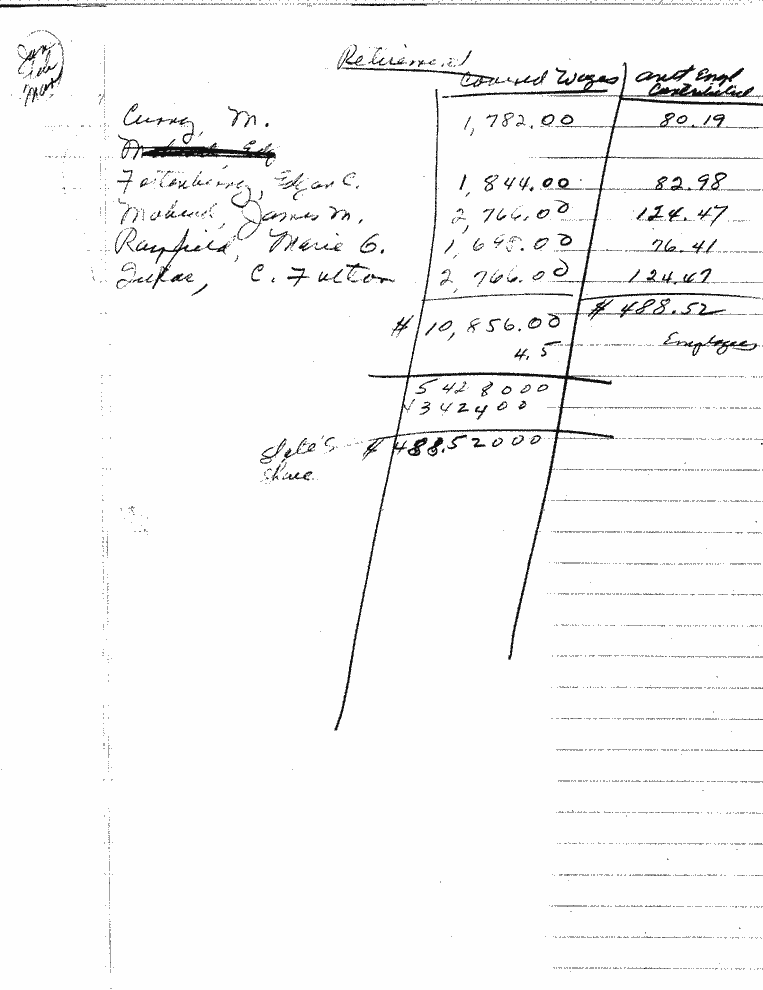 Jan
Feb
Mar
Retirement
Covered Wages
amt Empl
Contributed
Curry, M. 1,782.00 80.19
Fortenberry, Edgar C. 1,844.00 82.98
James M. 2,766.00 124.47
Rayfield, Marie G. 1,698.00 76.41
C. Fulton 2,766.00 124.47
$ 10,856.00 $ 488.52
4.5 Employees
5428000
4342400
State's $ 488.52000
Share